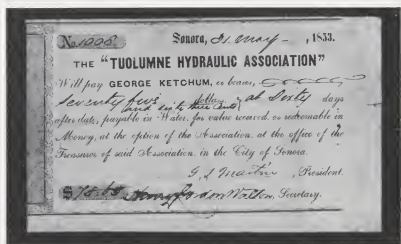 No. 1006. Sonora, 21. May - , 1853.
THE "TUOLUMNE HYDRAULIC ASSOCIATION"
Will pay GEORGE KETCHUM, or bearer,
Seventy five dollars at Sixty days
and sixty three cents
after date, payable in Water, for value received, or redeemable in
Money, at the option of the Association, at the office of the
Treasurer of said Association, in the City of Sonora.
G. S. Martin , President.
$75.63 Walton, Secretary.